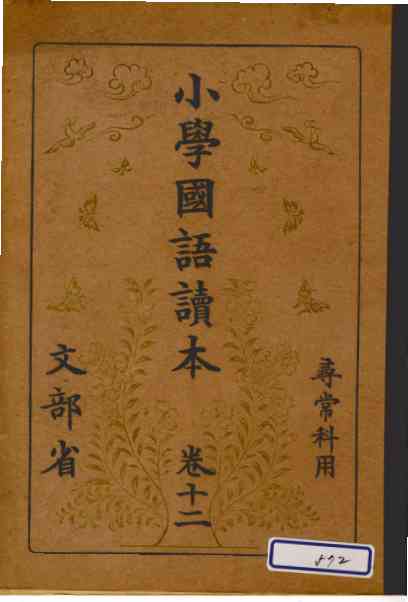 尋常科用
小學國語讀本
卷十二
文部省
592